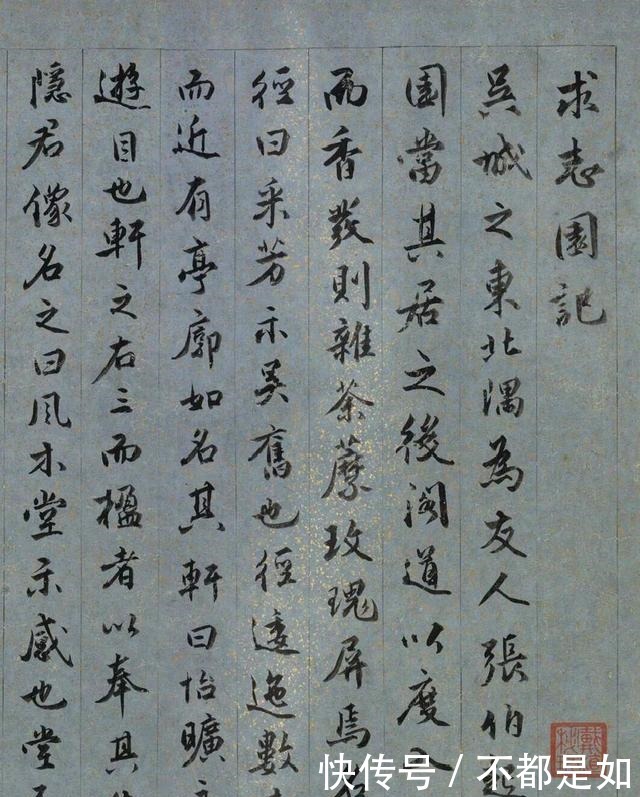 求志園記
吳城之東北隅為友人張伯起
園當其居之後閣道以度入
而香發則雜荼蘼玫瑰屏焉名
徑曰采芳示吳舊也徑逶迤數
而近有亭廓如名其軒曰怡曠
遊目也軒之右三而楹者以奉其
隱君像名之曰風木堂示感也堂
快传号 / 不都是如